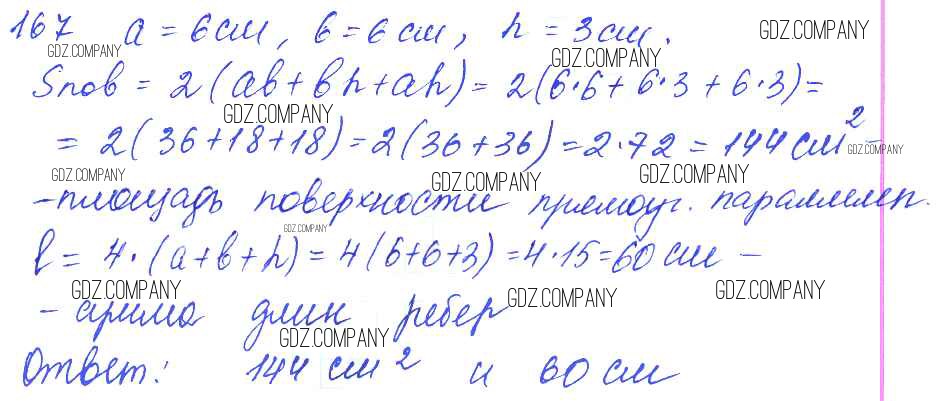 167 a = 6 см, в = 6 см, h = 3 см. GDZ.COMPANY
GDZ.COMPANY GDZ.COMPANY
Sпов = 2(ab+bh+ah) = 2(6·6+6·3+6·3)=
GDZ.COMPANY
= 2(36+18+18)=2(36+36)=2·72=144 см² -
GDZ.COMPANY
GDZ.COMPANY GDZ.COMPANY GDZ.COMPANY
-площадь поверхности прямоуг. параллелеп.
GDZ.COMPANY
l = 4·(a+b+h)=4(6+6+3)=4·15=60 см -
GDZ.COMPANY GDZ.COMPANY GDZ.COMPANY
- сумма длин ребер
GDZ.COMPANY
Ответ: 144 см² и 60 см